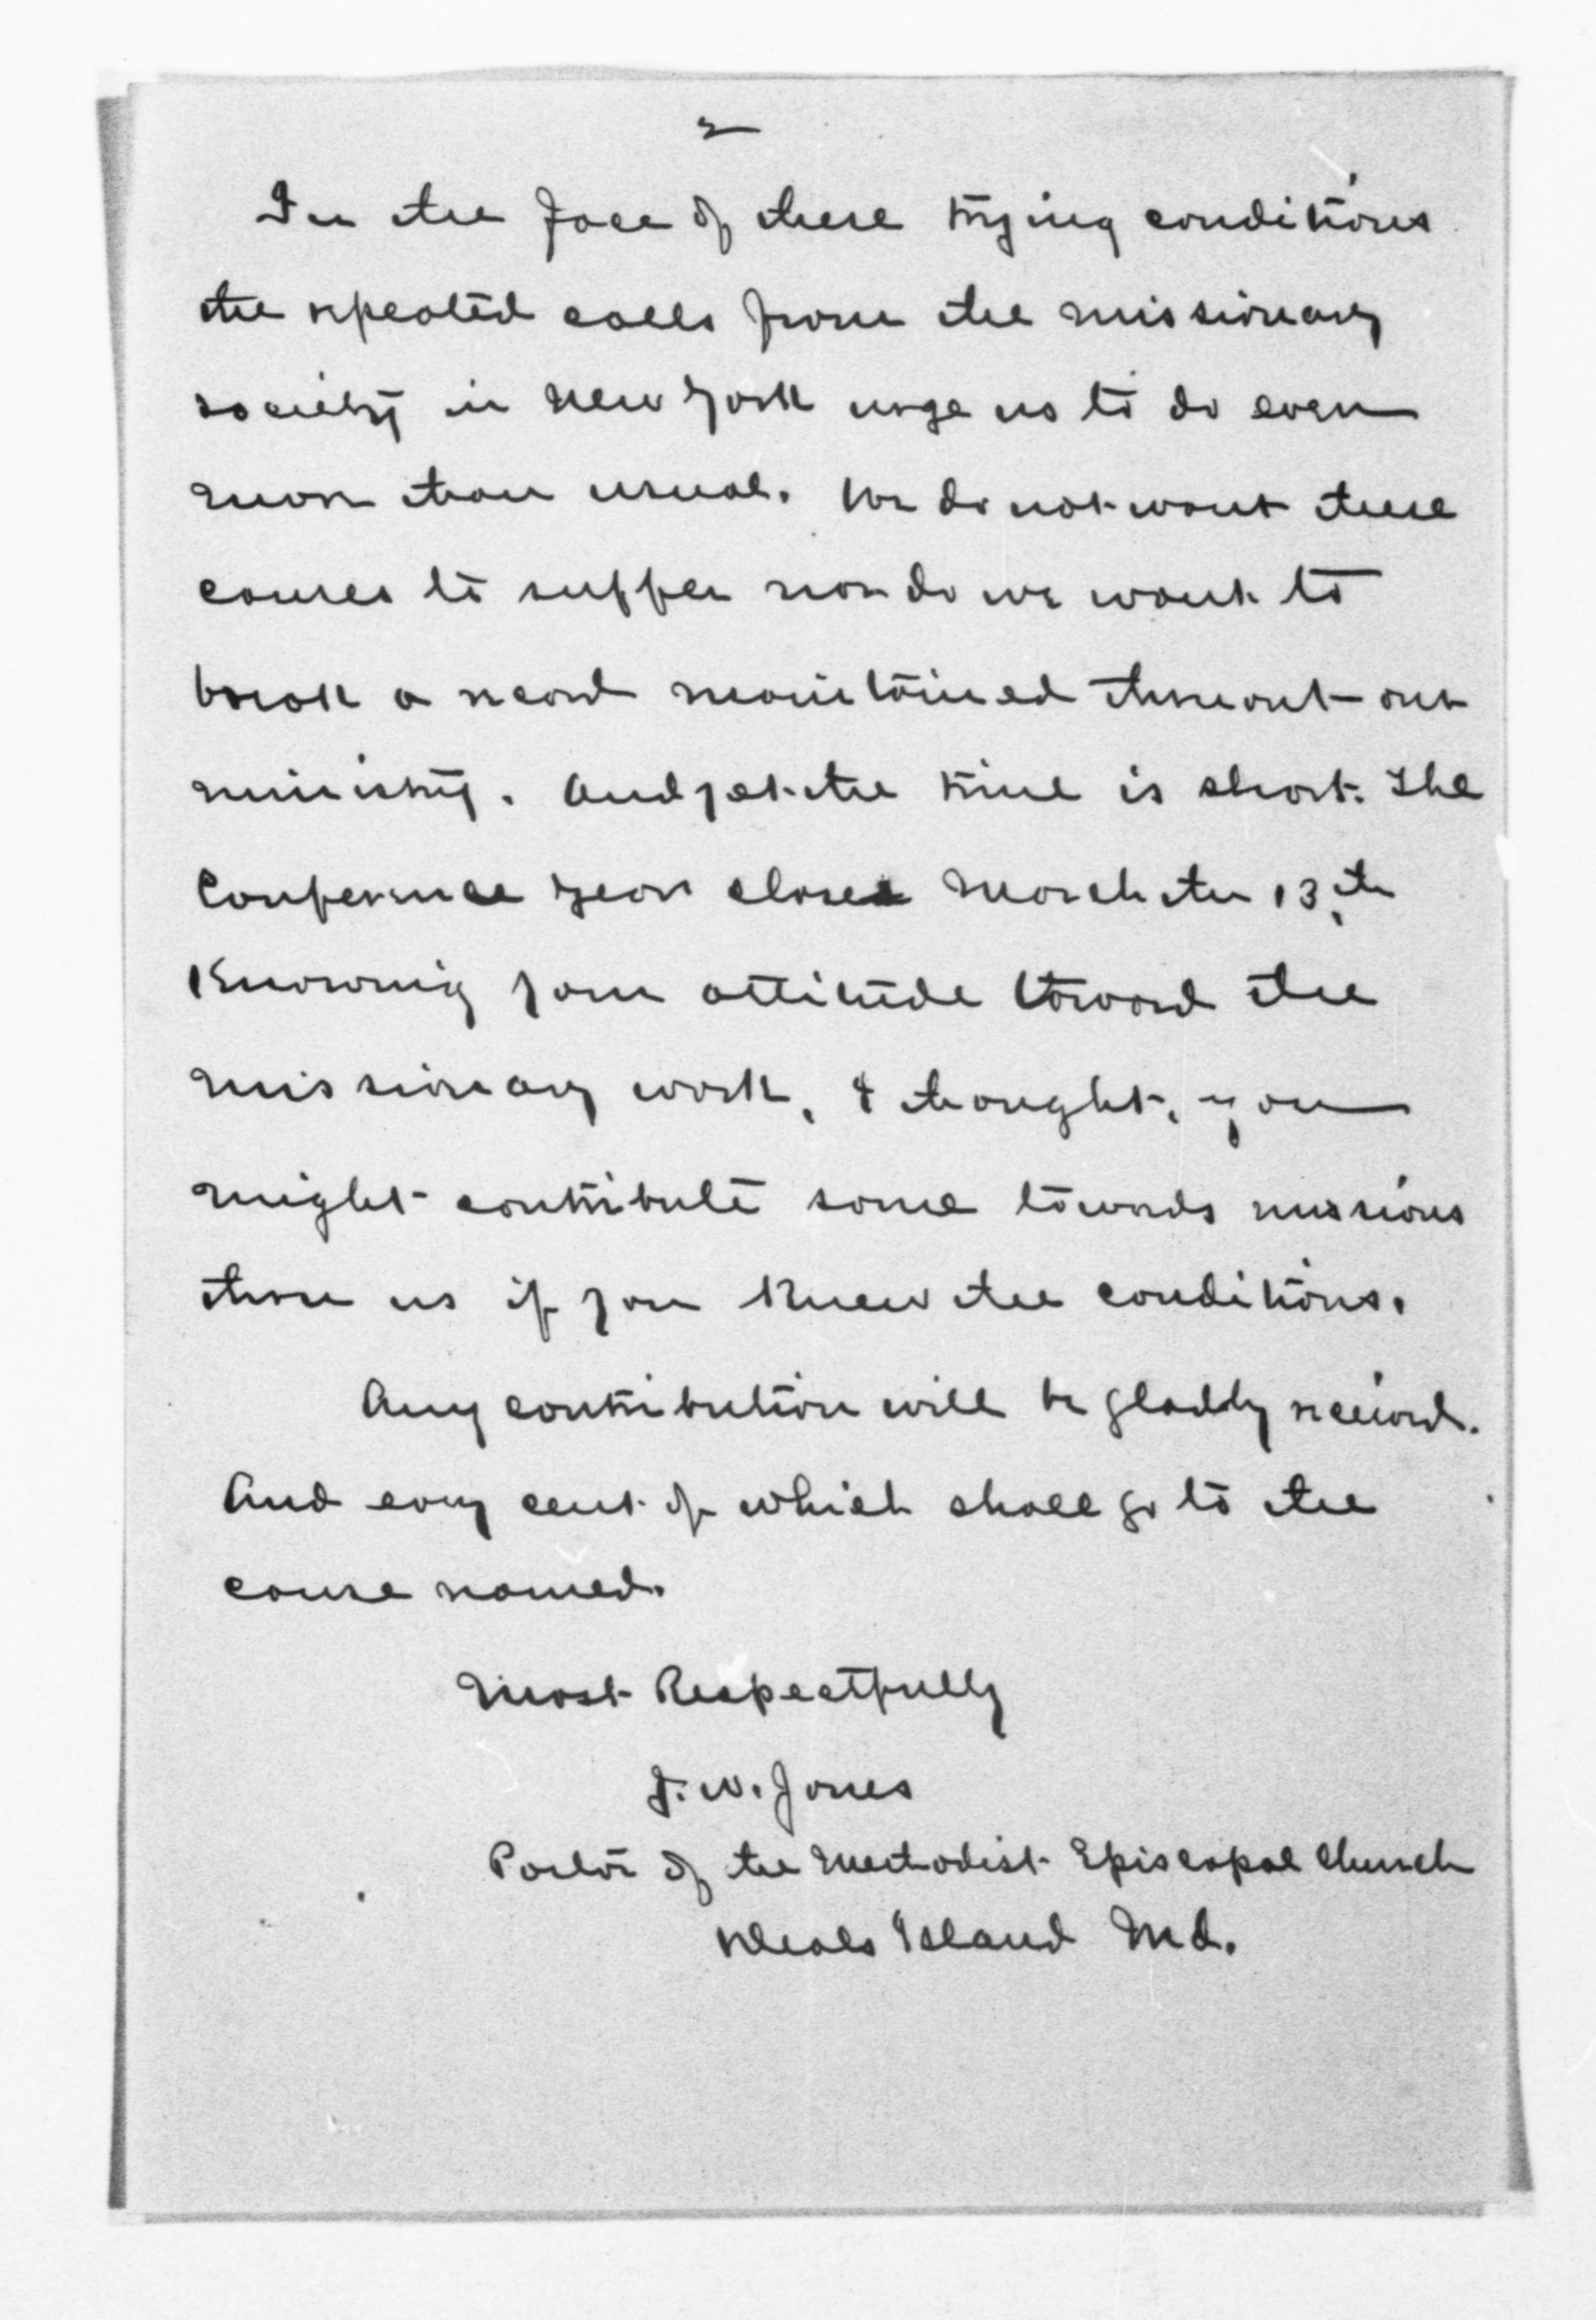 2
In the face of these trying conditions
the repeated calls from the missionary
society in New York urge us to do even
more than usual. We do not want these
causes to suffer nor do we want to
break a record maintained thruout our
ministry. And yet the time is short. The
Conference year closes March the 13th.
Knowing your attitude toward the
missionary work, I thought, you
might contribute some towards missions
thru us if you knew the conditions.
Any contribution will be gladly received.
And every cent of which shall go to the
cause named.
Most Respectfully
J. W. Jones
Pastor of the Methodist Episcopal Church
Deals Island Md.